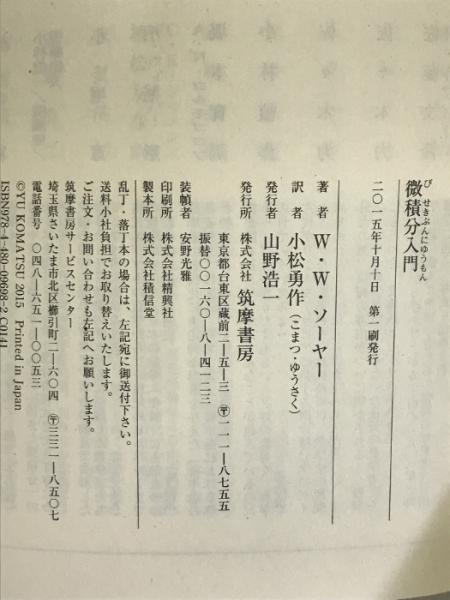 微積分入門
び せきぶんにゆうもん
二〇一五年十月十日 第一刷発行
著者 W・W・ソーヤー
訳者 小松勇作(こまつ・ゆうさく)
発行者 山野浩一
発行所 株式会社 筑摩書房
東京都台東区蔵前二―五―三 〒一一一―八七五五
振替〇〇一六〇―八―四一二三
装幀者 安野光雅
印刷所 株式会社精興社
製本所 株式会社積信堂
乱丁・落丁本の場合は、左記宛に御送付下さい。
送料小社負担でお取り替えいたします。
ご注文・お問い合わせも左記へお願いします。
筑摩書房サービスセンター
埼玉県さいたま市北区櫛引町二―六〇四 〒三三一―八五〇七
電話番号 〇四八―六五一―〇〇五三
©YU KOMATSU 2015 Printed in Japan
ISBN978-4-480-09698-2 C0141